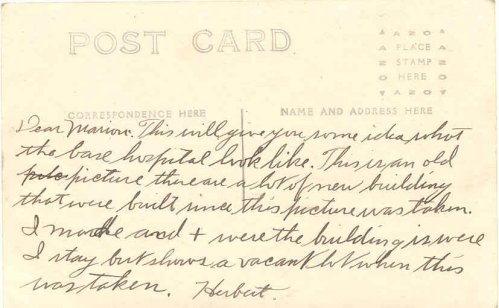 POST CARD
AZOA
PLACE
STAMP
HERE
AZOA
CORRESPONDENCE HERE
NAME AND ADDRESS HERE
Dear Marion. This will give you some idea what
the base hospital look like. This is an old
picture there are a lot of new building
that were built since this picture was taken.
I made and + were the building is were
I stay but shows a vacant lot when this
was taken. Herbert.